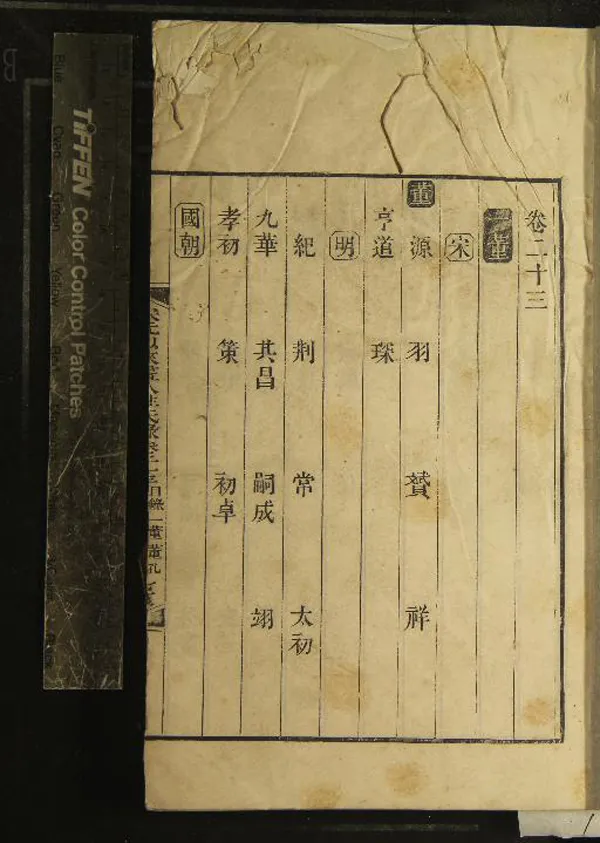 卷二十三
董
宋
董 源 羽 贇 祥
亨道 琛
明
紀 荆 常 太初
九華 其昌 嗣成 翊
孝初 策 初卓
國朝
TIFFEN Color Control Patches
Blue Cyan Green Yellow